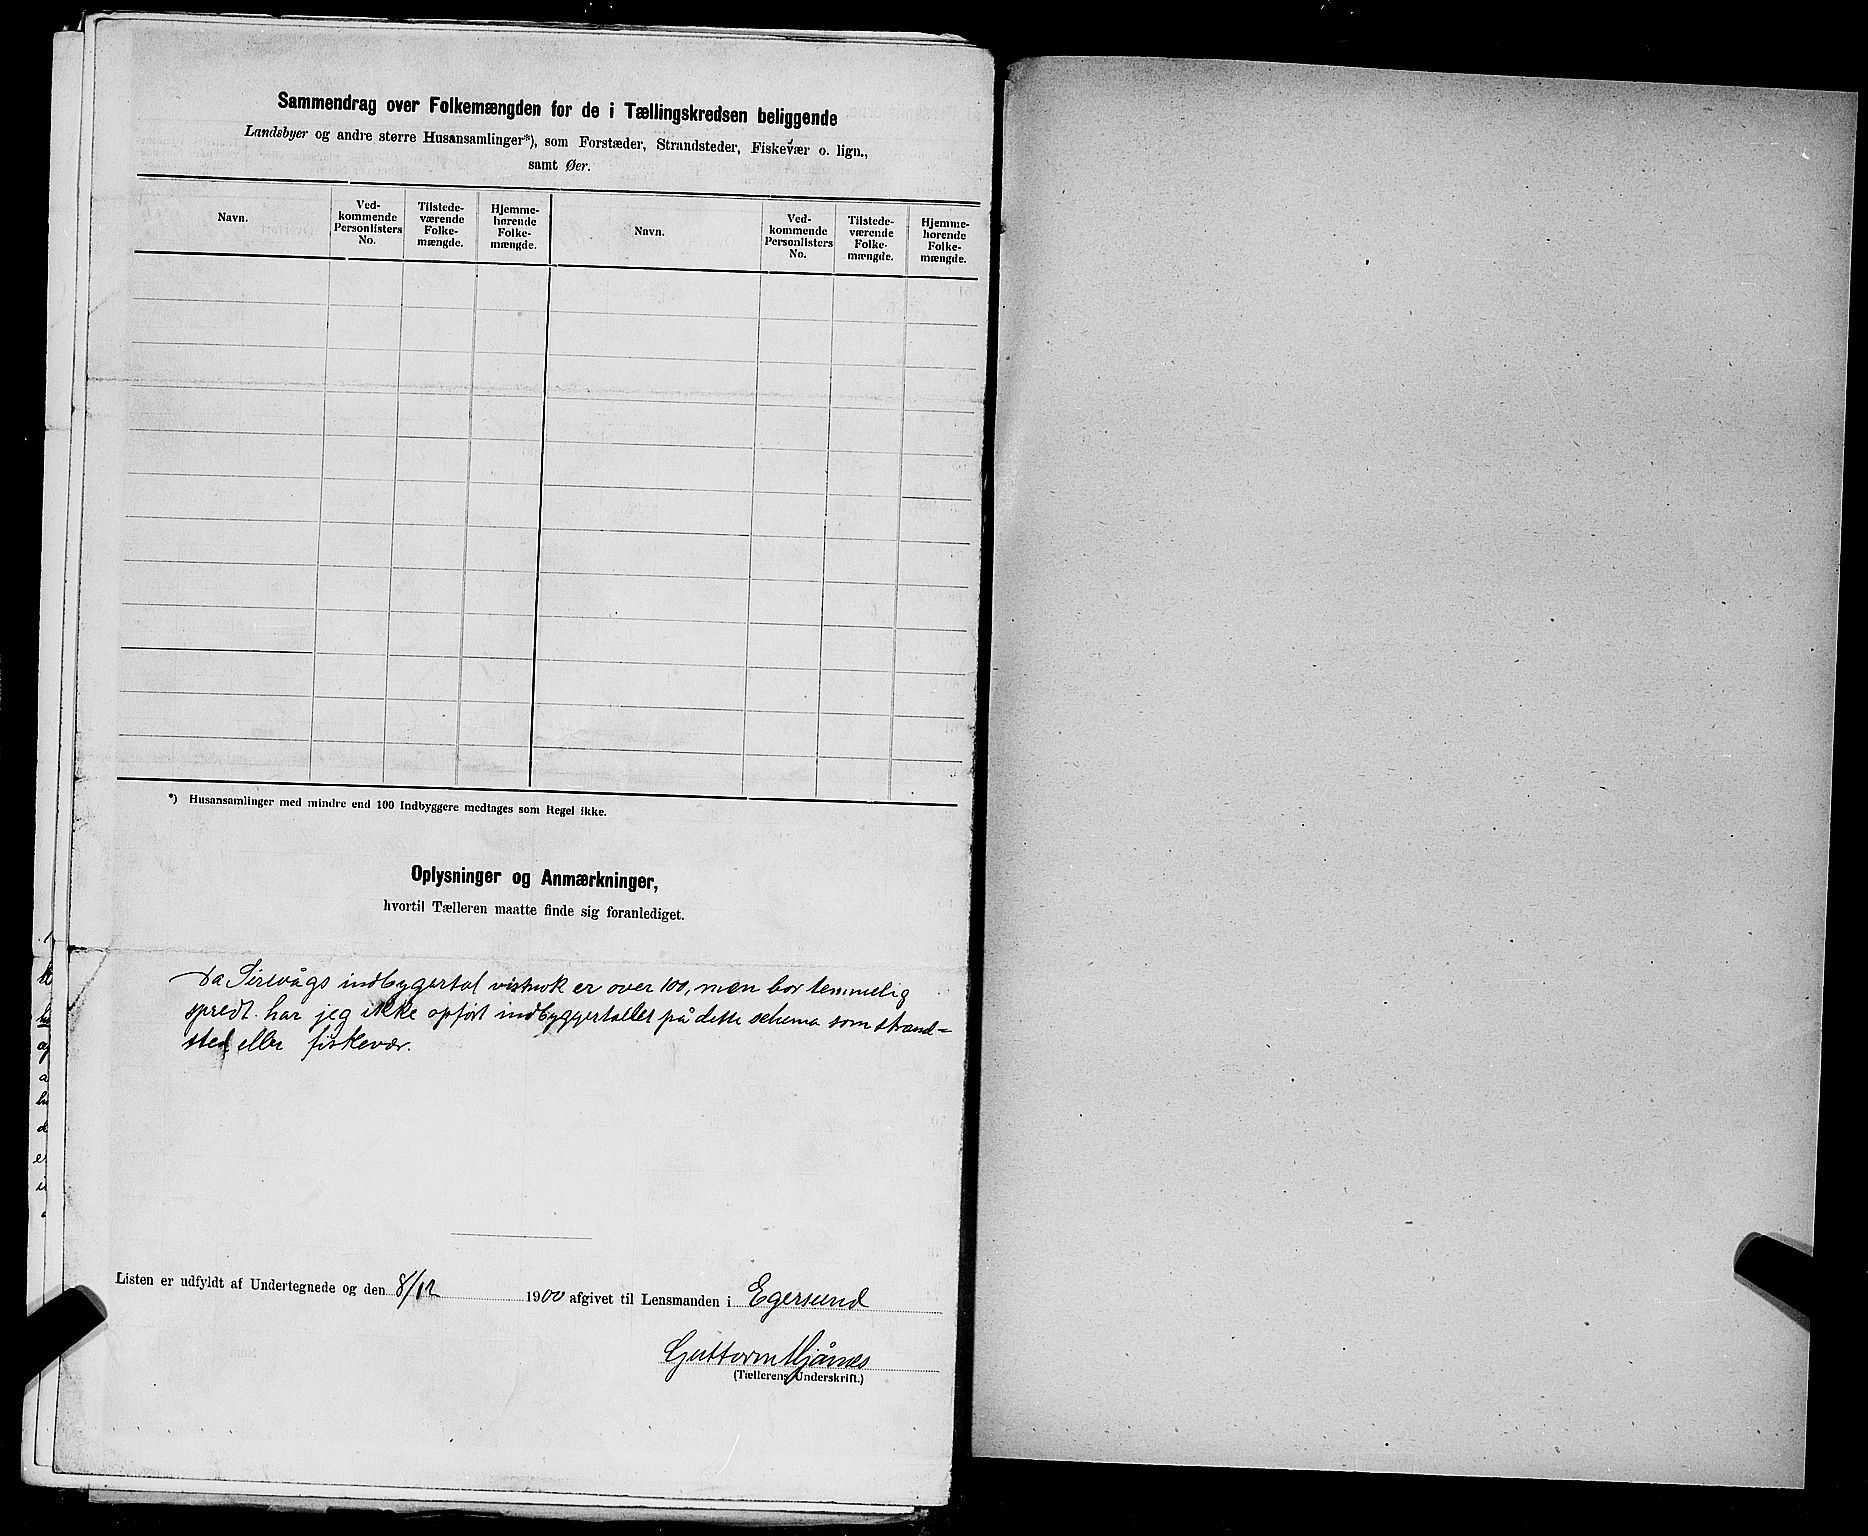 Sammendrag over Folkemængden for de i Tællingskredsen beliggende
Landsbyer og andre større Husansamlinger*), som Forstæder, Strandsteder, Fiskevær o. lign.,
samt Øer.
Navn.
Ved-
kommende
Personlisters
No.
Tilstede-
værende
Folke-
mængde.
Hjemme-
hørende
Folke-
mængde.
Navn.
Ved-
kommende
Personlisters
No.
Tilstede-
værende
Folke-
mængde.
Hjemme-
hørende
Folke-
mængde.
*) Husansamlinger med mindre end 100 Indbyggere medtages som Regel ikke.
Oplysninger og Anmærkninger,
hvortil Tælleren maatte finde sig foranlediget.
Da Sirevågs indbygertal vistnok er over 100, men bor temmelig
spredt. har jeg ikke opført indbyggertallet på dette schema som strand=
sted eller fiskevær.
Listen er udfyldt af Undertegnede og den 8/12 1900 afgivet til Lensmanden i Egersund
Guttorm Mjånes
(Tællerens Underskrift.)